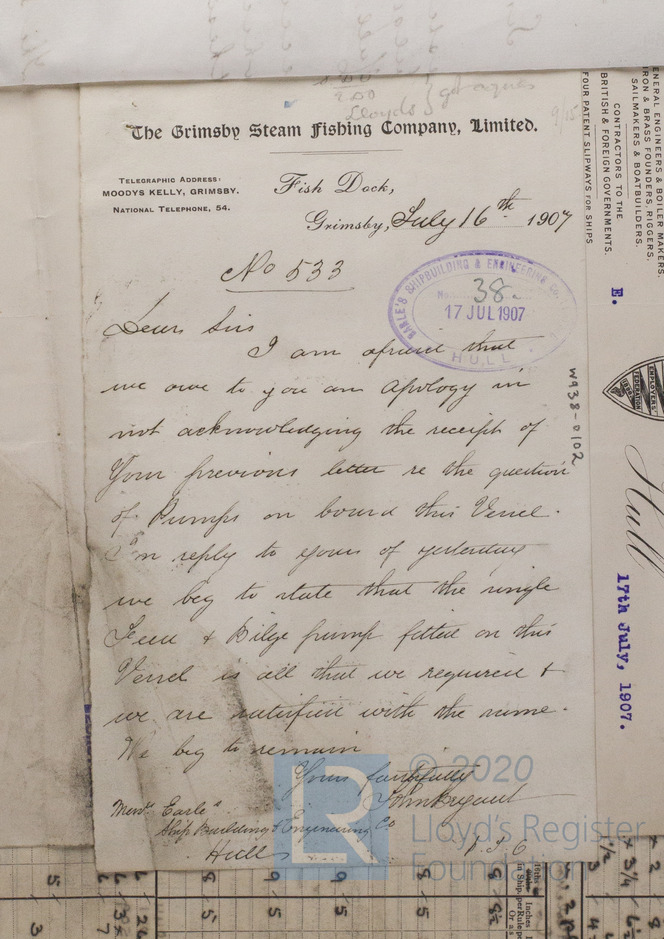 2.00
Lloyds
The Grimsby Steam Fishing Company, Limited.
TELEGRAPHIC ADDRESS:
MOODYS KELLY, GRIMSBY.
NATIONAL TELEPHONE, 54.
Fish Dock,
Grimsby, July 16th 1907
No 533
EARLE'S SHIPBUILDING & ENGINEERING Co
No. 38
17 JUL 1907
HULL
Dear Sirs
I am afraid that
we owe to you an apology in
not acknowledging the receipt of
Your previous letter re the question
of Pumps on board this Vessel.
In reply to yours of yesterday
we beg to state that the single
Feed & Bilge pump fitted on this
Vessel is all that we required &
we are satisfied with the same.
We beg to remain
Yours faithfully
Messrs Earle's
Ship Building & Engineering Co
Hull
W938-0102
GENERAL ENGINEERS & BOILER MAKERS,
IRON & BRASS FOUNDERS, RIGGERS,
SAILMAKERS & BOATBUILDERS.
CONTRACTORS TO THE
BRITISH & FOREIGN GOVERNMENTS.
FOUR PATENT SLIPWAYS FOR SHIPS
E.
EMPLOYERS'
FEDERATION
Hull
17th July, 1907.
© 2020
Lloyd's Register
Foundation
LR